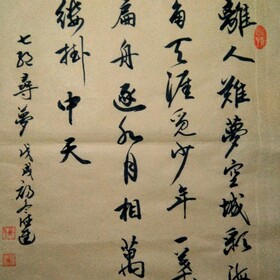 離人難夢空城彩海
角天涯覓少年一葉
扁舟逐水月相萬
縷掛中天
七絕尋夢戊戌初冬